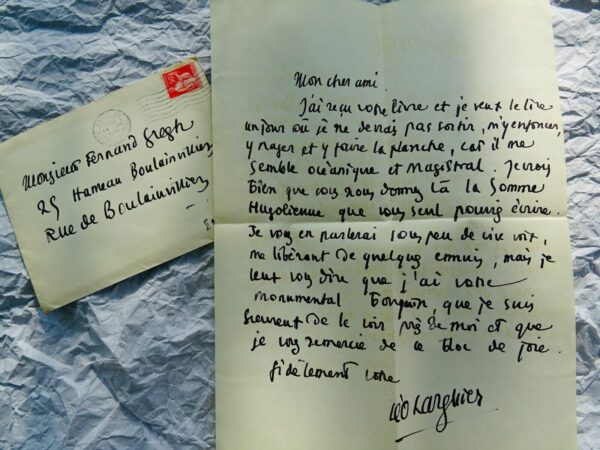 Monsieur Fernand Gregh
25 Hameau Boulainvilliers
Rue de Boulainvilliers
Mon cher ami.
J'ai reçu votre livre et je veux le lire
un jour où je ne devrais pas sortir, m'y enfoncer,
y nager et y faire la planche, car il me
semble océanique et magistral. Je crois
bien que vous nous donnez là la Somme
Hugolienne que vous seul pouviez écrire.
Je vous en parlerai sous peu de vive voix,
me libérant de quelques ennuis, mais je
veux vous dire que j'ai votre
monumental bouquin, que je suis
heureux de le voir près de moi et que
je vous remercie de ce bloc de joie.
fidèlement votre
Léo Larguier